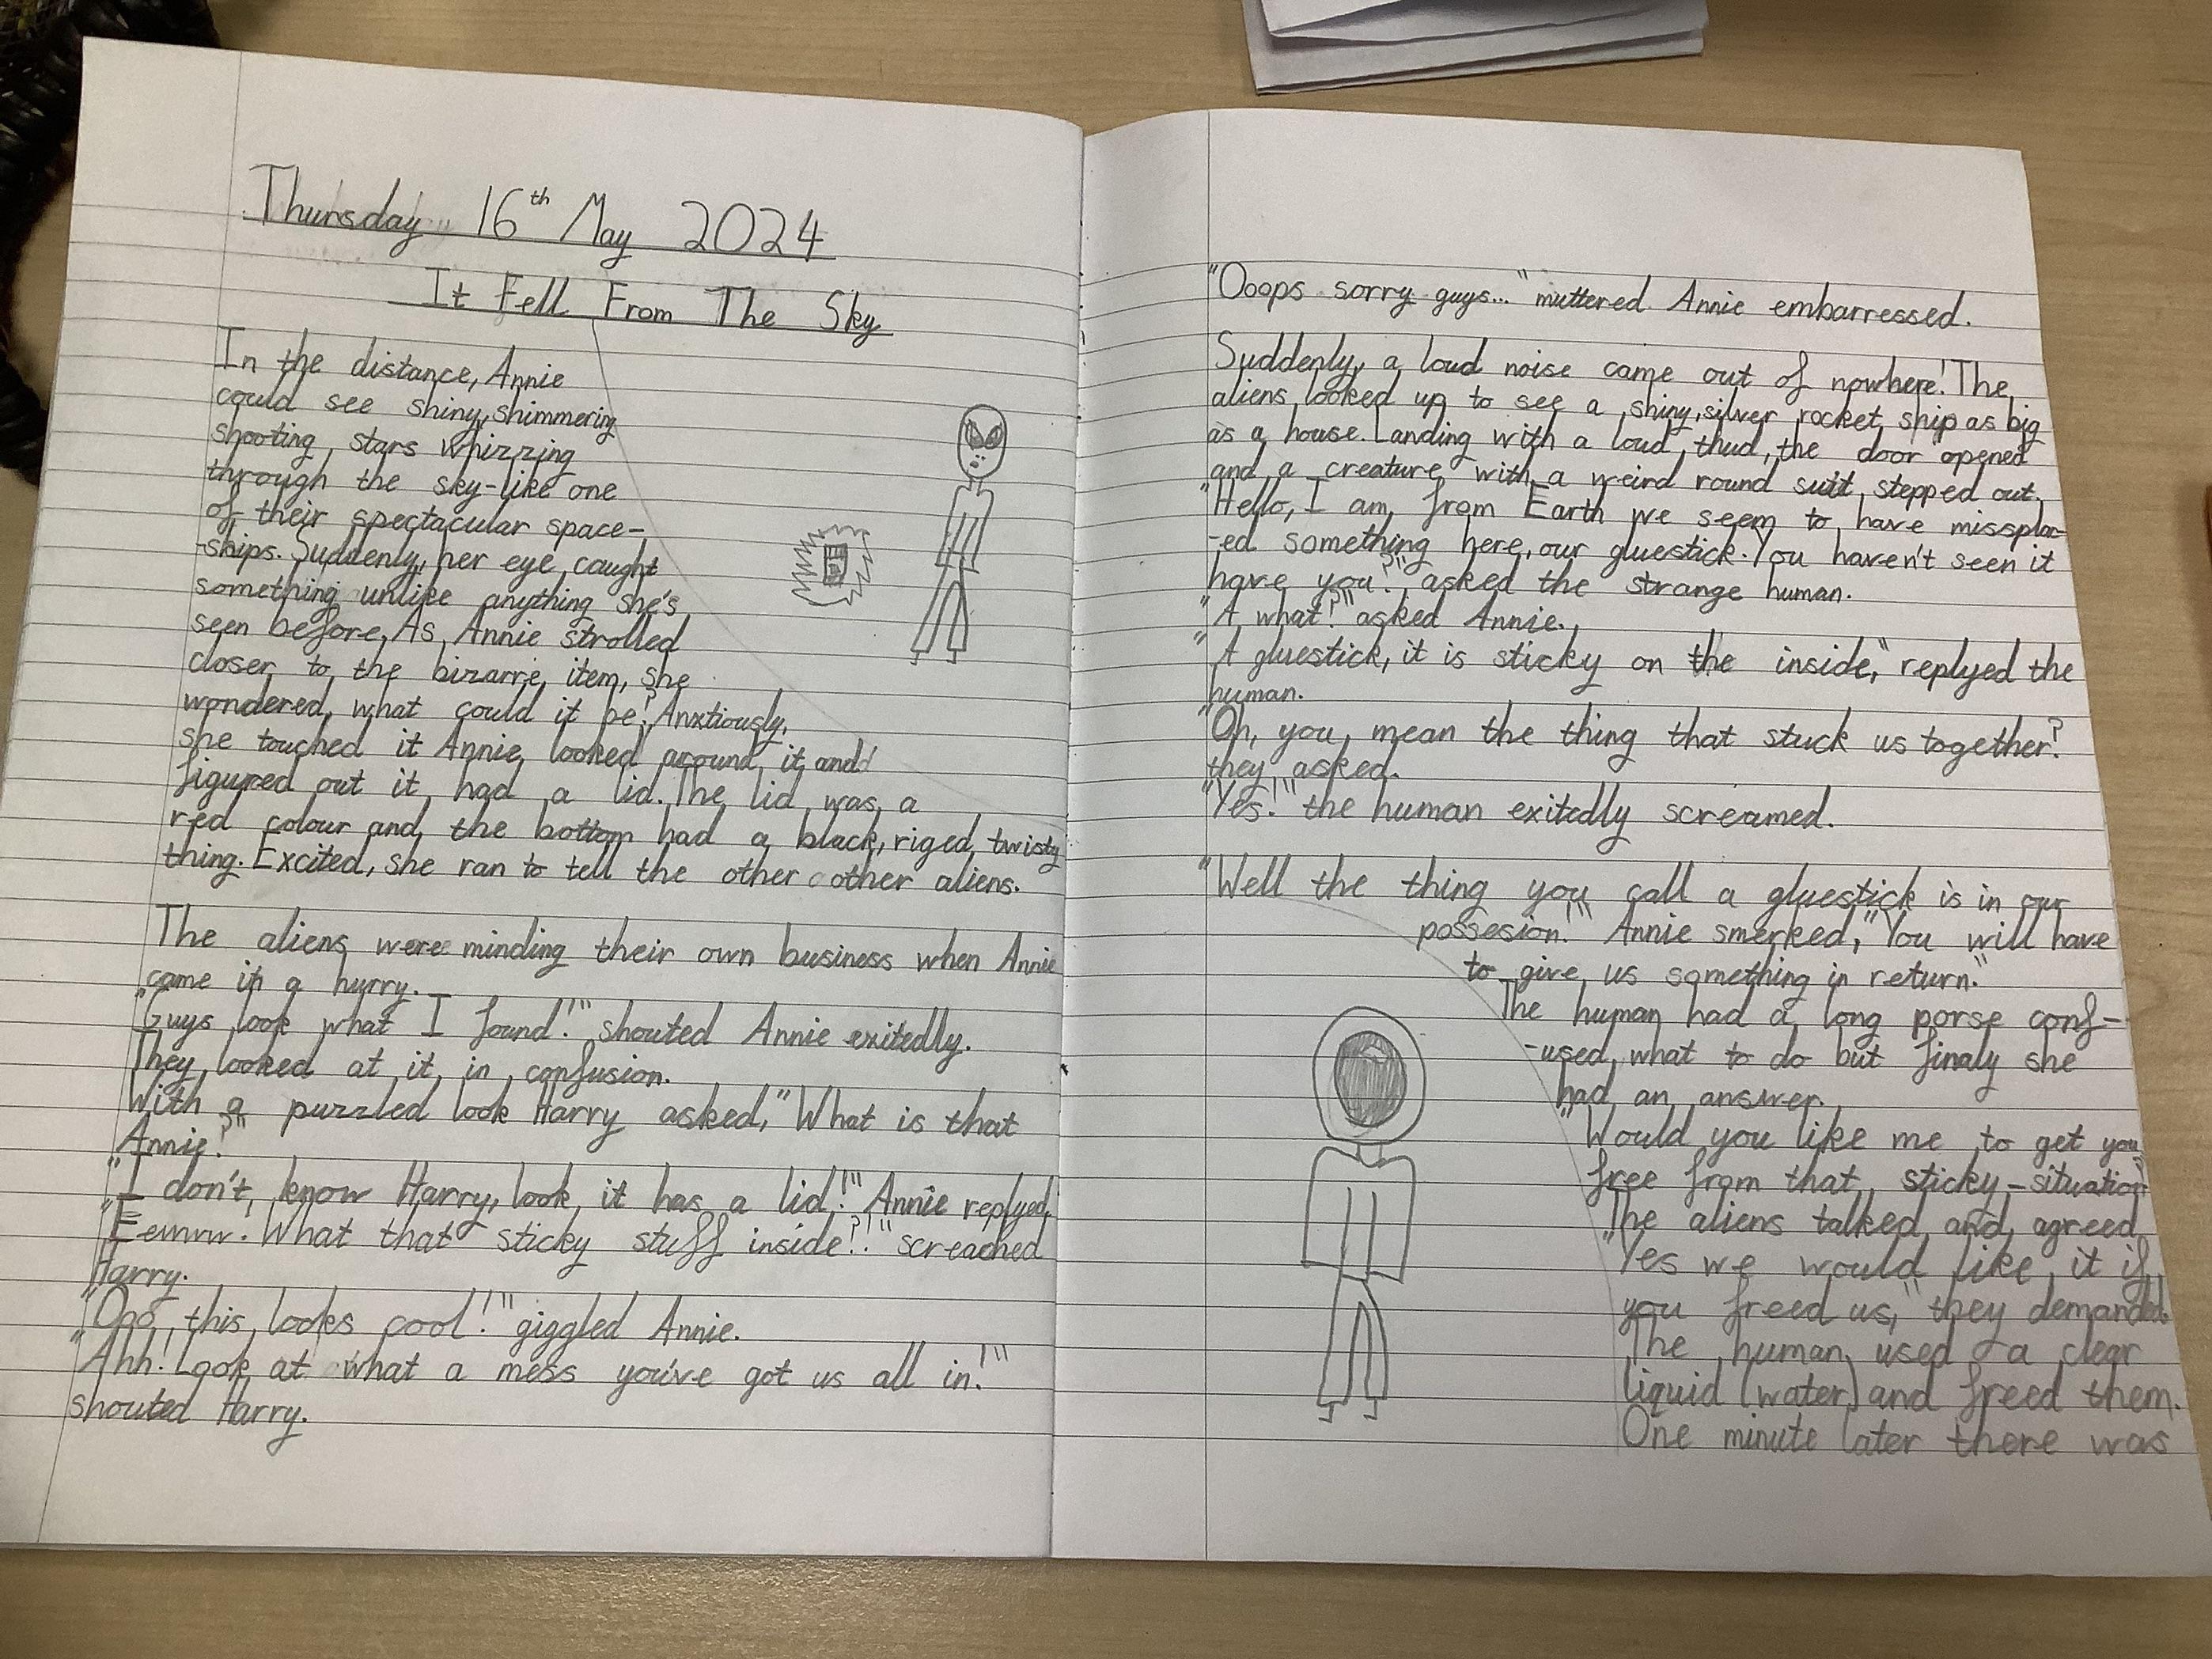 Thursday 16th May 2024
It Fell From The Sky
In the distance, Annie
could see shiny, shimmering
shooting stars whizzing
through the sky-like one
of their spectacular space-
-ships. Suddenly, her eye caught
something unlike anything she's
seen before. As Annie strolled
closer to the bizarre item, she
wondered, what could it be? Anxtiously,
she touched it Annie looked around it and
figured out it had a lid. The lid was a
red colour and the bottom had a black, riged, twisty
thing. Excited, she ran to tell the other other aliens.
The aliens were minding their own business when Annie
came in a hurry.
"Guys look what I found!" shouted Annie exitedly.
They looked at it in confusion.
With a puzzled look Harry asked, "What is that
Annie?"
"I don't know Harry, look it has a lid!" Annie replyed.
"Eewww! What that sticky stuff inside?!" screached
Harry.
"Ooo this looks cool!" giggled Annie.
"Ahh! Look at what a mess you've got us all in!"
shouted Harry.
"Ooops sorry guys..." muttered Annie embarressed.
Suddenly, a loud noise came out of nowhere! The
aliens looked up to see a shiny, silver rocket ship as big
as a house. Landing with a loud thud, the door opened
and a creature with a weird round suit stepped out.
"Hello, I am from Earth we seem to have missplac-
-ed something here, our gluestick. You haven't seen it
have you?" asked the strange human.
"A what?" asked Annie.
"A gluestick, it is sticky on the inside," replyed the
human.
"Oh, you mean the thing that stuck us together?
they asked.
"Yes!" the human exitedly screamed.
"Well the thing you call a gluestick is in our
possesion!" Annie smerked, "You will have
to give us something in return."
The human had a long porse conf-
-used what to do but finaly she
had an answer.
"Would you like me to get you
free from that sticky-situation?
The aliens talked and agreed
"Yes we would like it if
you freed us," they demanded.
The human used a clear
liquid (water) and freed them.
One minute later there was